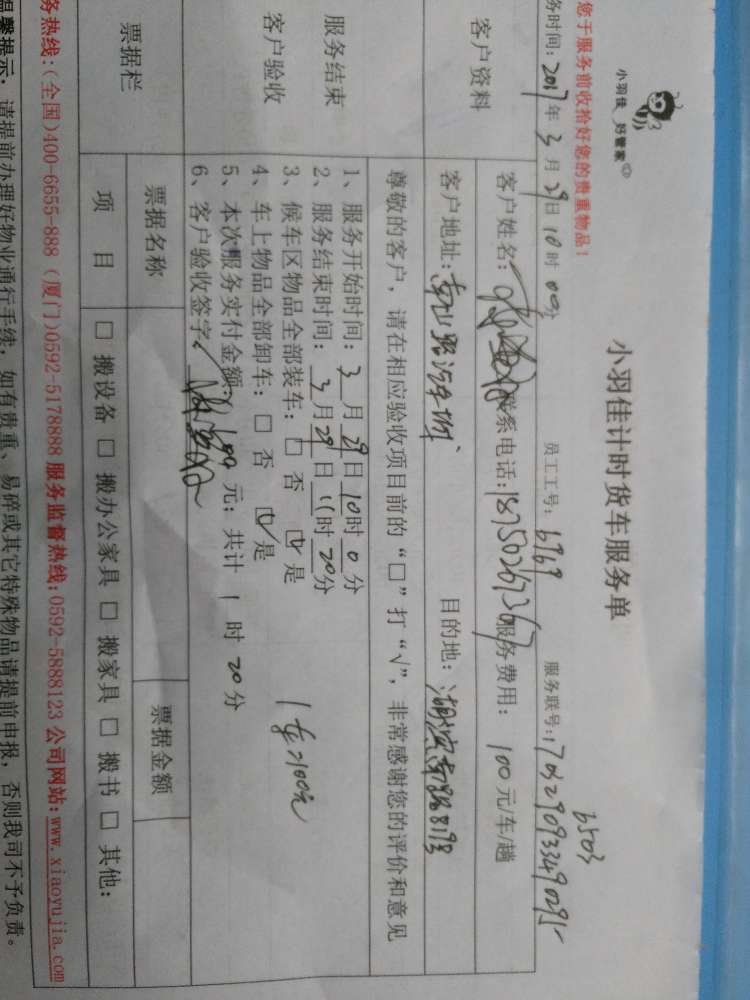 小羽佳 好管家
小羽佳计时货车服务单
6503
您于服务前收拾好您的贵重物品!
务时间: 2017年3月29日10时00分 员工工号: 6969 服务联号:
客户资料
客户姓名: 联系电话:18750267367 服务费用: 100元/车/趟
客户地址: 目的地: 湖滨南路819号
尊敬的客户, 请在相应验收项目前的“□”打“√”, 非常感谢您的评价和意见
服务结束
客户验收
1、服务开始时间: 3月29日10时0分
2、服务结束时间: 3月29日11时20分
3、候车区物品全部装车: □ 否 ☑ 是
4、车上物品全部卸车: □ 否 ☑ 是
1车2100元
5、本次服务实付金额: 元; 共计 1 时 20 分
6、客户验收签字:
票据栏
票据名称 票据金额
项 目 □ 搬设备 □ 搬办公家具 □ 搬家具 □ 搬书 □ 其他:
务热线:(全国)400-6655-888 (厦门)0592-5178888 服务监督热线:0592-5888123 公司网站:www.xiaoyujia.com
温馨提示: 请提前办理好物业通行手续, 如有贵重、易碎或其它特殊物品请提前申报, 否则我司不予负责。